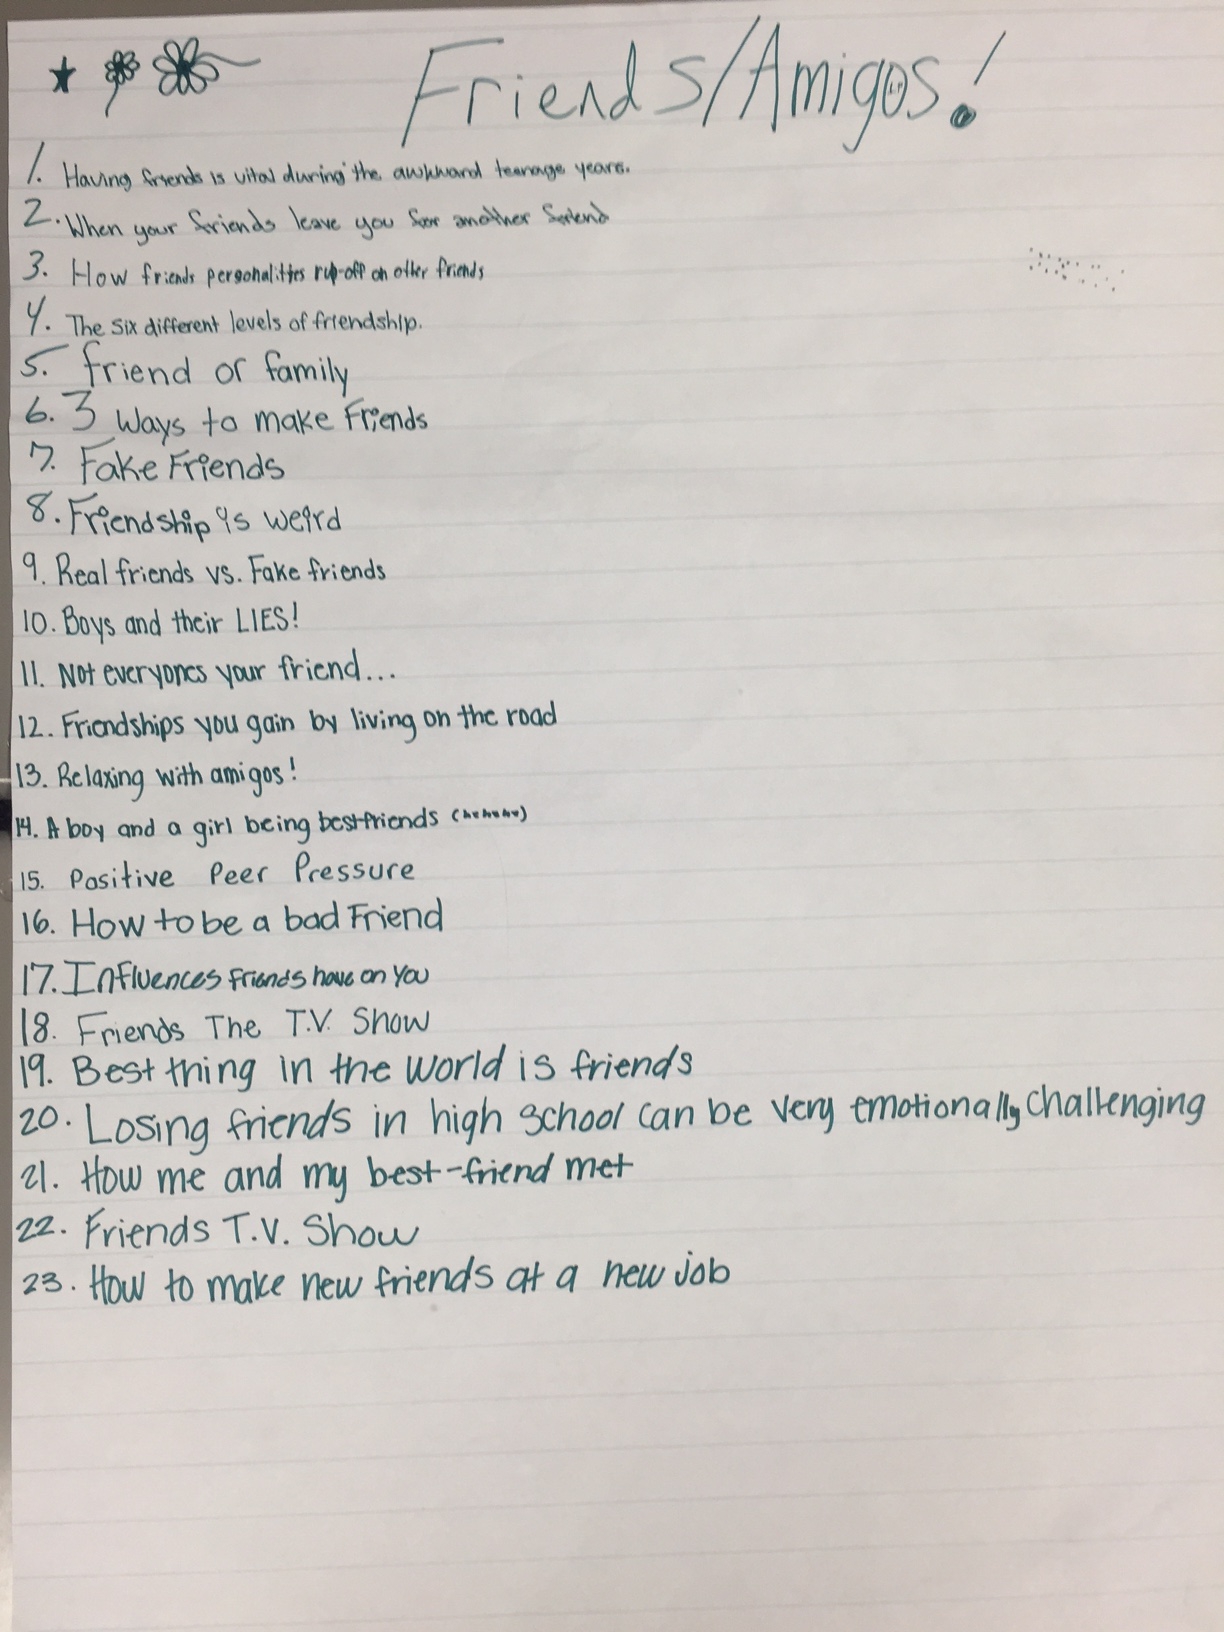 Friends/Amigos!
1. Having friends is vital during the awkward teenage years.
2. When your friends leave you for another friend
3. How friends personalities rub-off on other friends
4. The six different levels of friendship.
5. friend or family
6. 3 Ways to make Friends
7. Fake Friends
8. Friendship is weird
9. Real friends vs. Fake friends
10. Boys and their LIES!
11. Not everyones your friend...
12. Friendships you gain by living on the road
13. Relaxing with amigos!
14. A boy and a girl being bestfriends
15. Positive Peer Pressure
16. How to be a bad Friend
17. Influences friends have on You
18. Friends The T.V. Show
19. Best thing in the world is friends
20. Losing friends in high school can be very emotionally challenging
21. How me and my best-friend met
22. Friends T.V. Show
23. How to make new friends at a new job